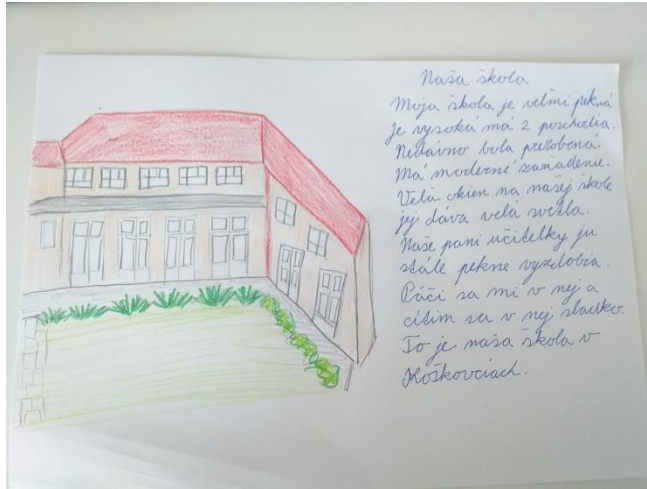 Naša škola
Moja škola je veľmi pekná
je vysoká má 2 poschodia.
Nedávno bola prerobená.
Má moderné zariadenie.
Veľa okien na našej škole
jej dáva veľa svetla.
Naše pani učiteľky ju
stále pekne vyzdobia.
Páči sa mi v nej a
cítim sa v nej sladko.
To je naša škola v
Koškovciach.